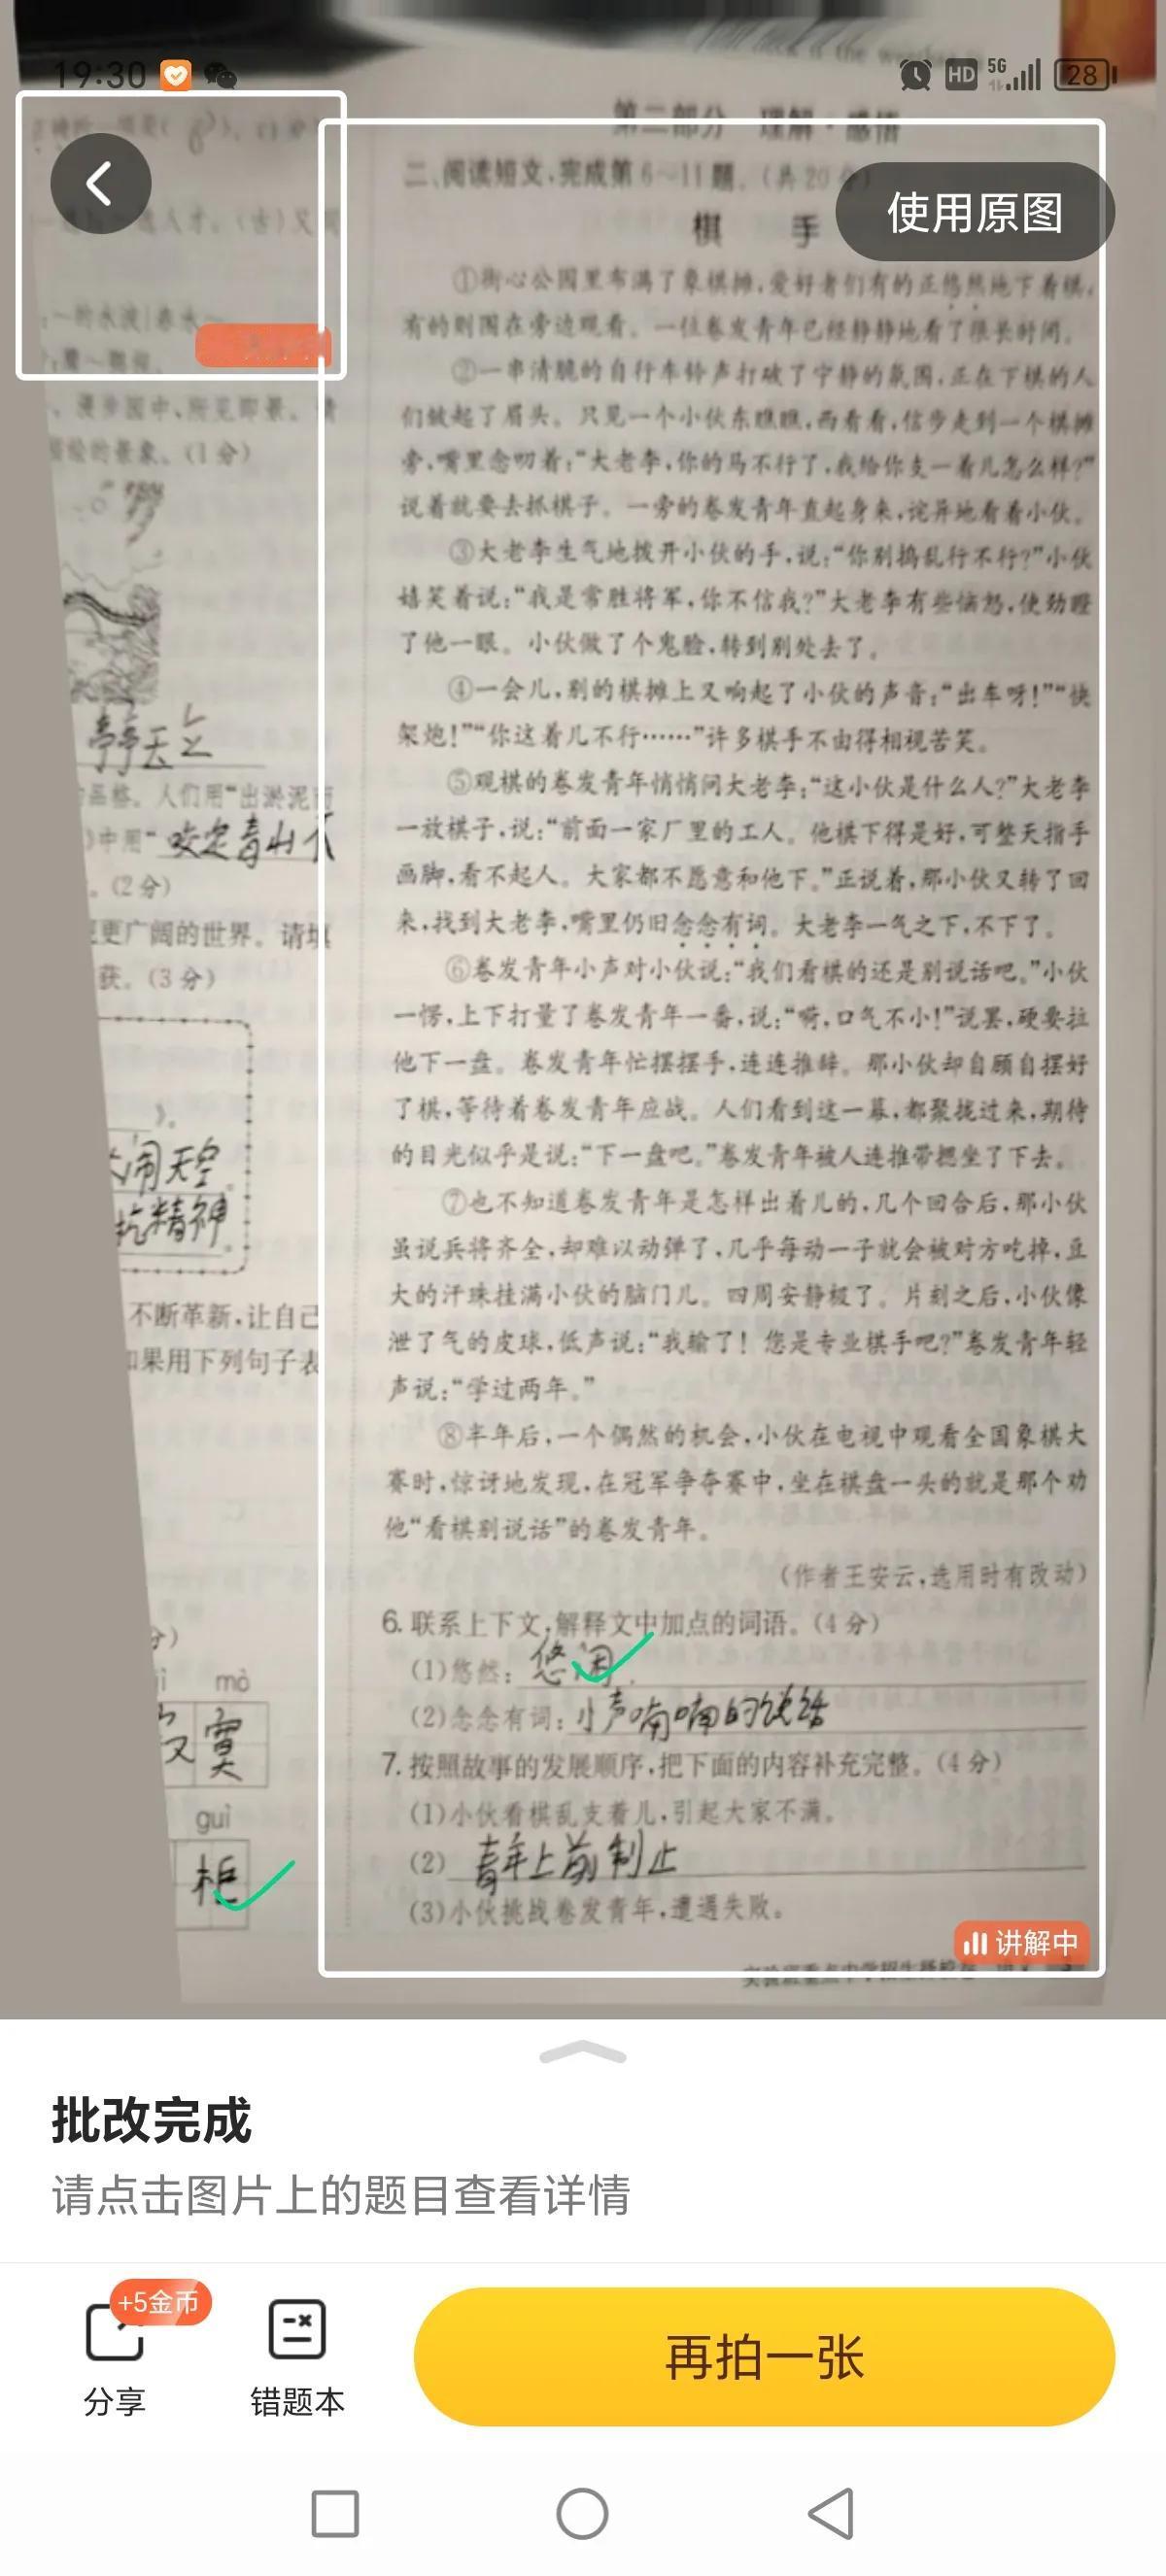 19:30
HD
5G
28
第二部分 理解·感悟
使用原图
二、阅读短文,完成第6~11题。(共20分)
棋 手
①街心公园里布满了象棋摊,爱好者们有的正悠然地下着棋,
有的则围在旁边观看。一位卷发青年已经静静地看了很长时间。
②一串清脆的自行车铃声打破了宁静的氛围,正在下棋的人
们皱起了眉头。只见一个小伙东瞧瞧,西看看,信步走到一个棋摊
旁,嘴里念叨着:“大老李,你的马不行了,我给你支一着儿怎么样?”
说着就要去抓棋子。一旁的卷发青年直起身来,诧异地看着小伙。
③大老李生气地拨开小伙的手,说:“你别捣乱行不行?”小伙
嬉笑着说:“我是常胜将军,你不信我?”大老李有些恼怒,使劲瞪
了他一眼。小伙做了个鬼脸,转到别处去了。
④一会儿,别的棋摊上又响起了小伙的声音:“出车呀!”“快
架炮!”“你这着儿不行……”许多棋手不由得相视苦笑。
⑤观棋的卷发青年悄悄问大老李:“这小伙是什么人?”大老李
一放棋子,说:“前面一家厂里的工人。他棋下得是好,可整天指手
画脚,看不起人。大家都不愿意和他下。”正说着,那小伙又转了回
来,找到大老李,嘴里仍旧念念有词。大老李一气之下,不下了。
⑥卷发青年小声对小伙说:“我们看棋的还是别说话吧。”小伙
一愣,上下打量了卷发青年一番,说:“啊,口气不小!”说罢,硬要拉
他下一盘。卷发青年忙摆摆手,连连推辞。那小伙却自顾自摆好
了棋,等待着卷发青年应战。人们看到这一幕,都聚拢过来,期待
的目光似乎是说:“下一盘吧。”卷发青年被人连推带摁坐了下去。
⑦也不知道卷发青年是怎样出着儿的,几个回合后,那小伙
虽说兵将齐全,却难以动弹了,几乎每动一子就会被对方吃掉,豆
大的汗珠挂满小伙的脑门儿。四周安静极了。片刻之后,小伙像
泄了气的皮球,低声说:“我输了!您是专业棋手吧?”卷发青年轻
声说:“学过两年。”
⑧半年后,一个偶然的机会,小伙在电视中观看全国象棋大
赛时,惊讶地发现,在冠军争夺赛中,坐在棋盘一头的就是那个劝
他“看棋别说话”的卷发青年。
(作者王安云,选用时有改动)
6.联系上下文,解释文中加点的词语。(4分)
(1)悠然:悠闲.
(2)念念有词:小声喃喃的说话
7.按照故事的发展顺序,把下面的内容补充完整。(4分)
(1)小伙看棋乱支着儿,引起大家不满。
(2)青年上前制止
(3)小伙挑战卷发青年,遭遇失败。
讲解中
人才。(古)又
、漫步园中,所见即景。
描绘的景象。(1分)
亭亭玉立
品格。人们用“出淤泥而
中用“咬定青山不
。(2分)
更广阔的世界。请填
获。(3分)
)。
闹天空
抗精神。
不断革新,让自己
如果用下列句子表
mò
寞
guì
柜
批改完成
请点击图片上的题目查看详情
+5金币
分享
错题本
再拍一张